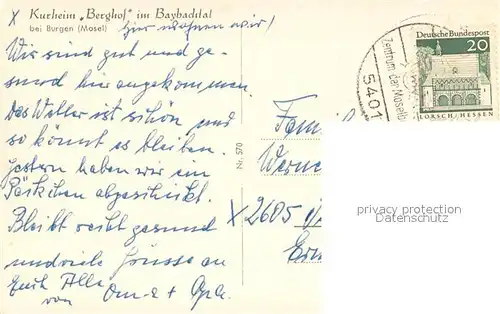 x Kurheim „Berghof" im Baybachtal
bei Burgen (Mosel) hier wohnen wir!
Wir sind gut und ge-
sund hier angekommen.
Das Wetter ist schön und
so könnt es bleiben.
Gestern haben wir ein
Päckchen abgeschickt.
Bleibt recht gesund
und viele Grüsse an
Euch Alle
von Oma + Opa.
Nr. 570
Fam
Werne
x 2605
5401
Zentrum der
Deutsche Bundespost
20
LORSCH/HESSEN
privacy protection
Datenschutz